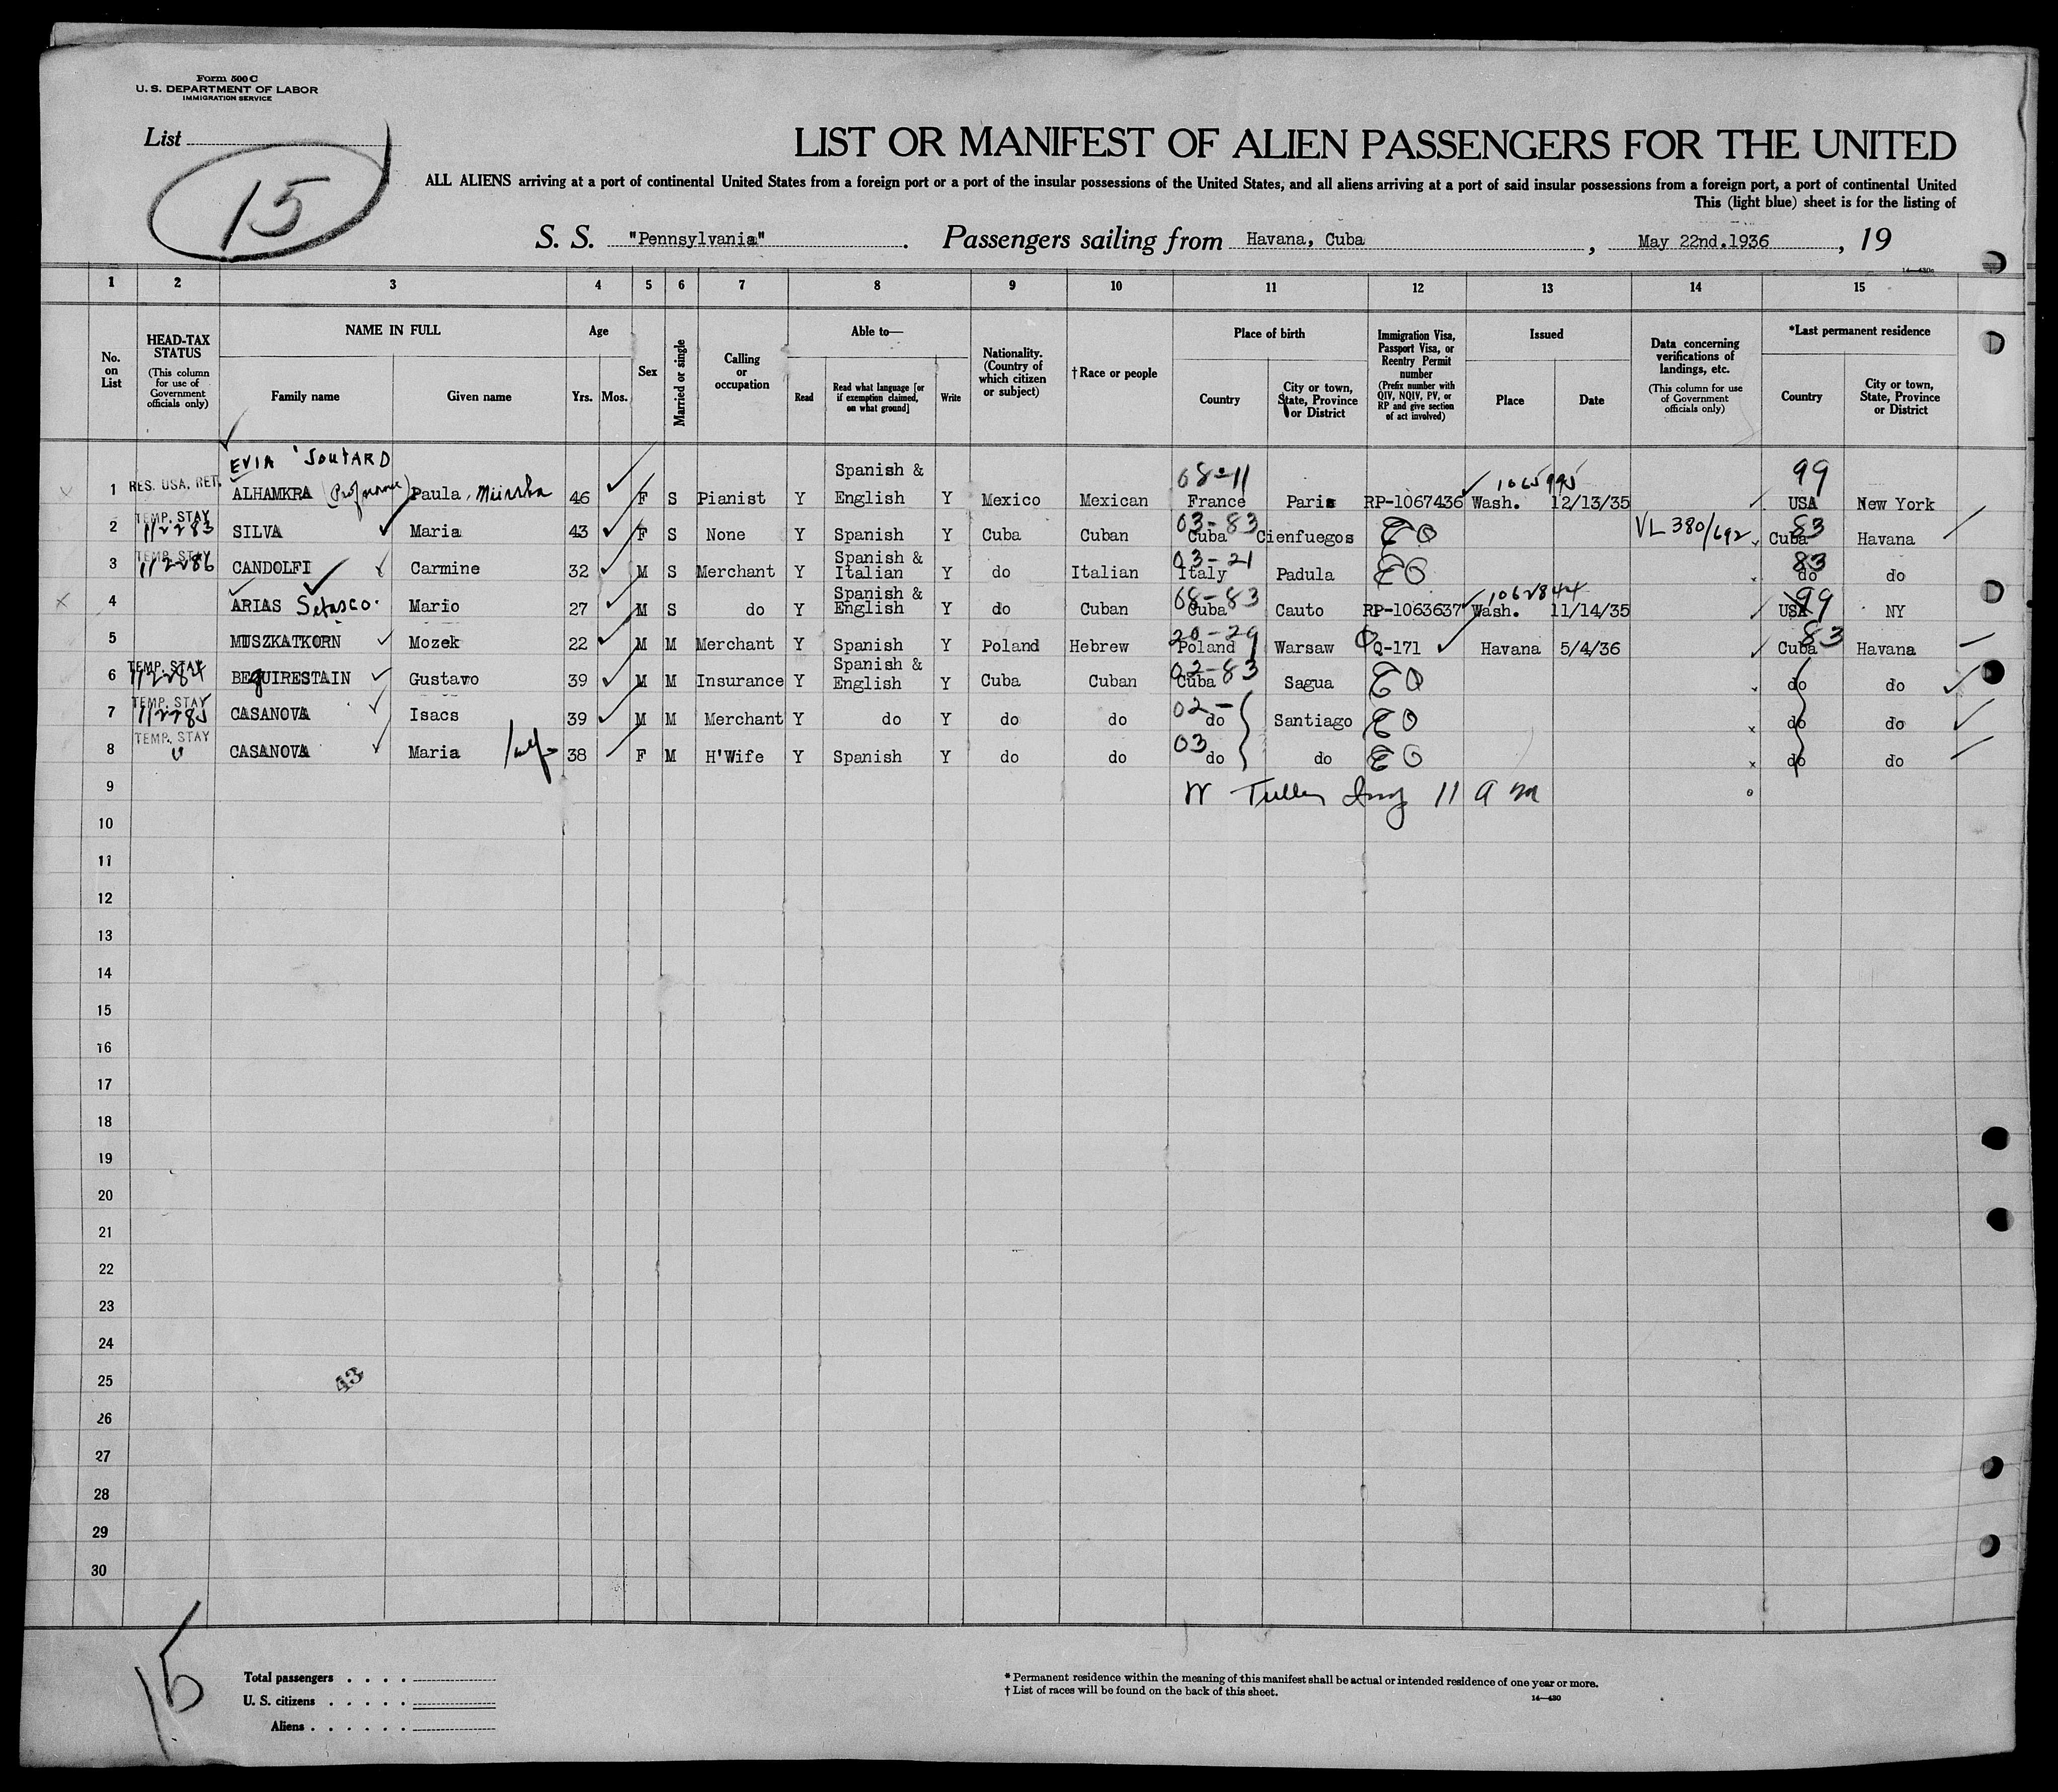 Form 500 C
U. S. DEPARTMENT OF LABOR
IMMIGRATION SERVICE
List
15
LIST OR MANIFEST OF ALIEN PASSENGERS FOR THE UNITED
ALL ALIENS arriving at a port of continental United States from a foreign port or a port of the insular possessions of the United States, and all aliens arriving at a port of said insular possessions from a foreign port, a port of continental United
This (light blue) sheet is for the listing of
S. S. "Pennsylvania" . Passengers sailing from Havana, Cuba , May 22nd.1936 , 19
14—430c
1 2 3 4 5 6 7 8 9 10 11 12 13 14 15
No. on List
HEAD-TAX STATUS (This column for use of Government officials only)
NAME IN FULL Family name Given name
Age Yrs. Mos.
Sex
Married or single
Calling or occupation
Able to— Read Read what language [or if exemption claimed, on what ground] Write
Nationality. (Country of which citizen or subject)
†Race or people
Place of birth Country City or town, State, Province or District
Immigration Visa, Passport Visa, or Reentry Permit number (Prefix number with QIV, NQIV, PV, or RP and give section of act involved)
Issued Place Date
Data concerning verifications of landings, etc. (This column for use of Government officials only)
*Last permanent residence Country City or town, State, Province or District
EVIA SOUTARD 68-11 1065995 99
1 RES. USA. RET. ALHAMKRA Paula 46 F S Pianist Y Spanish & English Y Mexico Mexican France Paris RP-1067436 Wash. 12/13/35 USA New York
2 TEMP. STAY 112283 SILVA Maria 43 F S None Y Spanish Y Cuba Cuban 03-83 Cuba Cienfuegos VL 380/692 83 Cuba Havana
3 TEMP. STAY 112286 CANDOLFI Carmine 32 M S Merchant Y Spanish & Italian Y do Italian 03-21 Italy Padula 83 do do
4 ARIAS Mario 27 M S do Y Spanish & English Y do Cuban 68-83 Cuba Cauto RP-1063637 1062844 Wash. 11/14/35 99 USA NY
5 MUSZKATKORN Mozek 22 M M Merchant Y Spanish Y Poland Hebrew 20-29 Poland Warsaw Q-171 Havana 5/4/36 83 Cuba Havana
6 TEMP. STAY 112284 BEGUIRESTAIN Gustavo 39 M M Insurance Y Spanish & English Y Cuba Cuban 02-83 Cuba Sagua do do
7 TEMP. STAY 112285 CASANOVA Isacs 39 M M Merchant Y do Y do do 02- do Santiago do do
8 TEMP. STAY CASANOVA Maria 38 F M H'Wife Y Spanish Y do do 03 do do do do
9 11 a m
10
11
12
13
14
15
16
17
18
19
20
21
22
23
24
25
43
26
27
28
29
30
15
Total passengers . . . .
U. S. citizens . . . . .
Aliens . . . . . .
* Permanent residence within the meaning of this manifest shall be actual or intended residence of one year or more.
† List of races will be found on the back of this sheet.
14—430